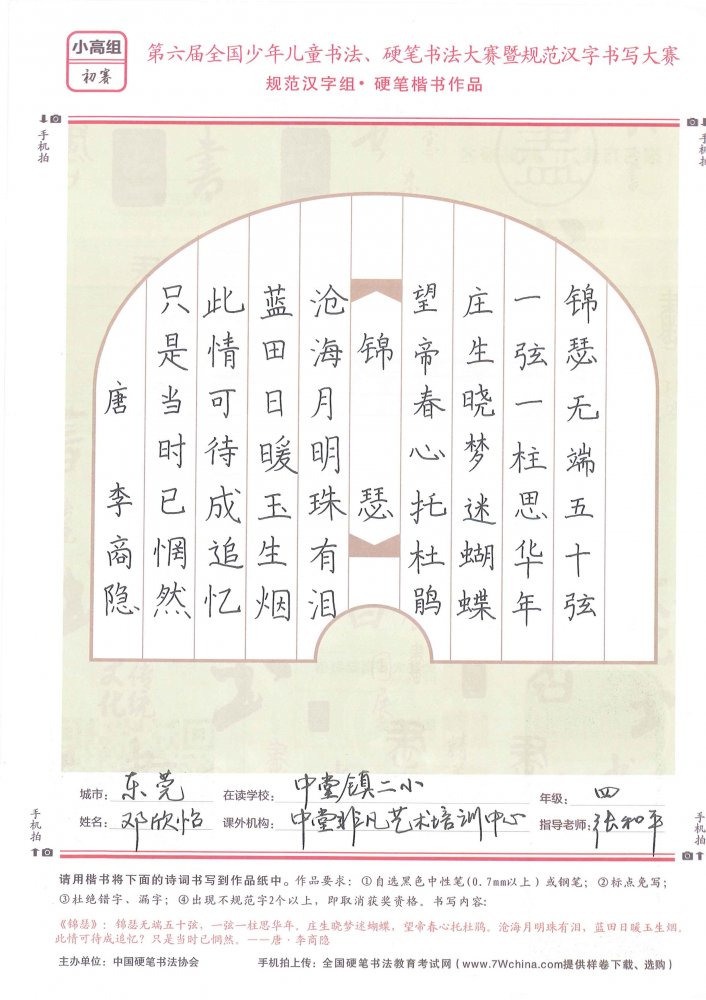 小高组
初赛
第六届全国少年儿童书法、硬笔书法大赛暨规范汉字书写大赛
规范汉字组·硬笔楷书作品
手机拍
手机拍
锦瑟无端五十弦
一弦一柱思华年
庄生晓梦迷蝴蝶
望帝春心托杜鹃
锦瑟
沧海月明珠有泪
蓝田日暖玉生烟
此情可待成追忆
只是当时已惘然
唐 李商隐
城市：东莞 在读学校：中堂镇二小 年级：四
姓名：邓欣怡 课外机构：中堂非凡艺术培训中心 指导老师：张和平
手机拍
手机拍
请用楷书将下面的诗词书写到作品纸中。作品要求：①自选黑色中性笔(0.7mm以上）或钢笔；②标点免写；
③杜绝错字、漏字；④出现不规范字2个以上，即取消获奖资格。书写内容：
《锦瑟》：锦瑟无端五十弦，一弦一柱思华年。庄生晓梦迷蝴蝶，望帝春心托杜鹃。沧海月明珠有泪，蓝田日暖玉生烟。
此情可待成追忆？只是当时已惘然。——唐·李商隐
主办单位：中国硬笔书法协会 手机拍上传：全国硬笔书法教育考试网（www.7Wchina.com提供样卷下载、选购）